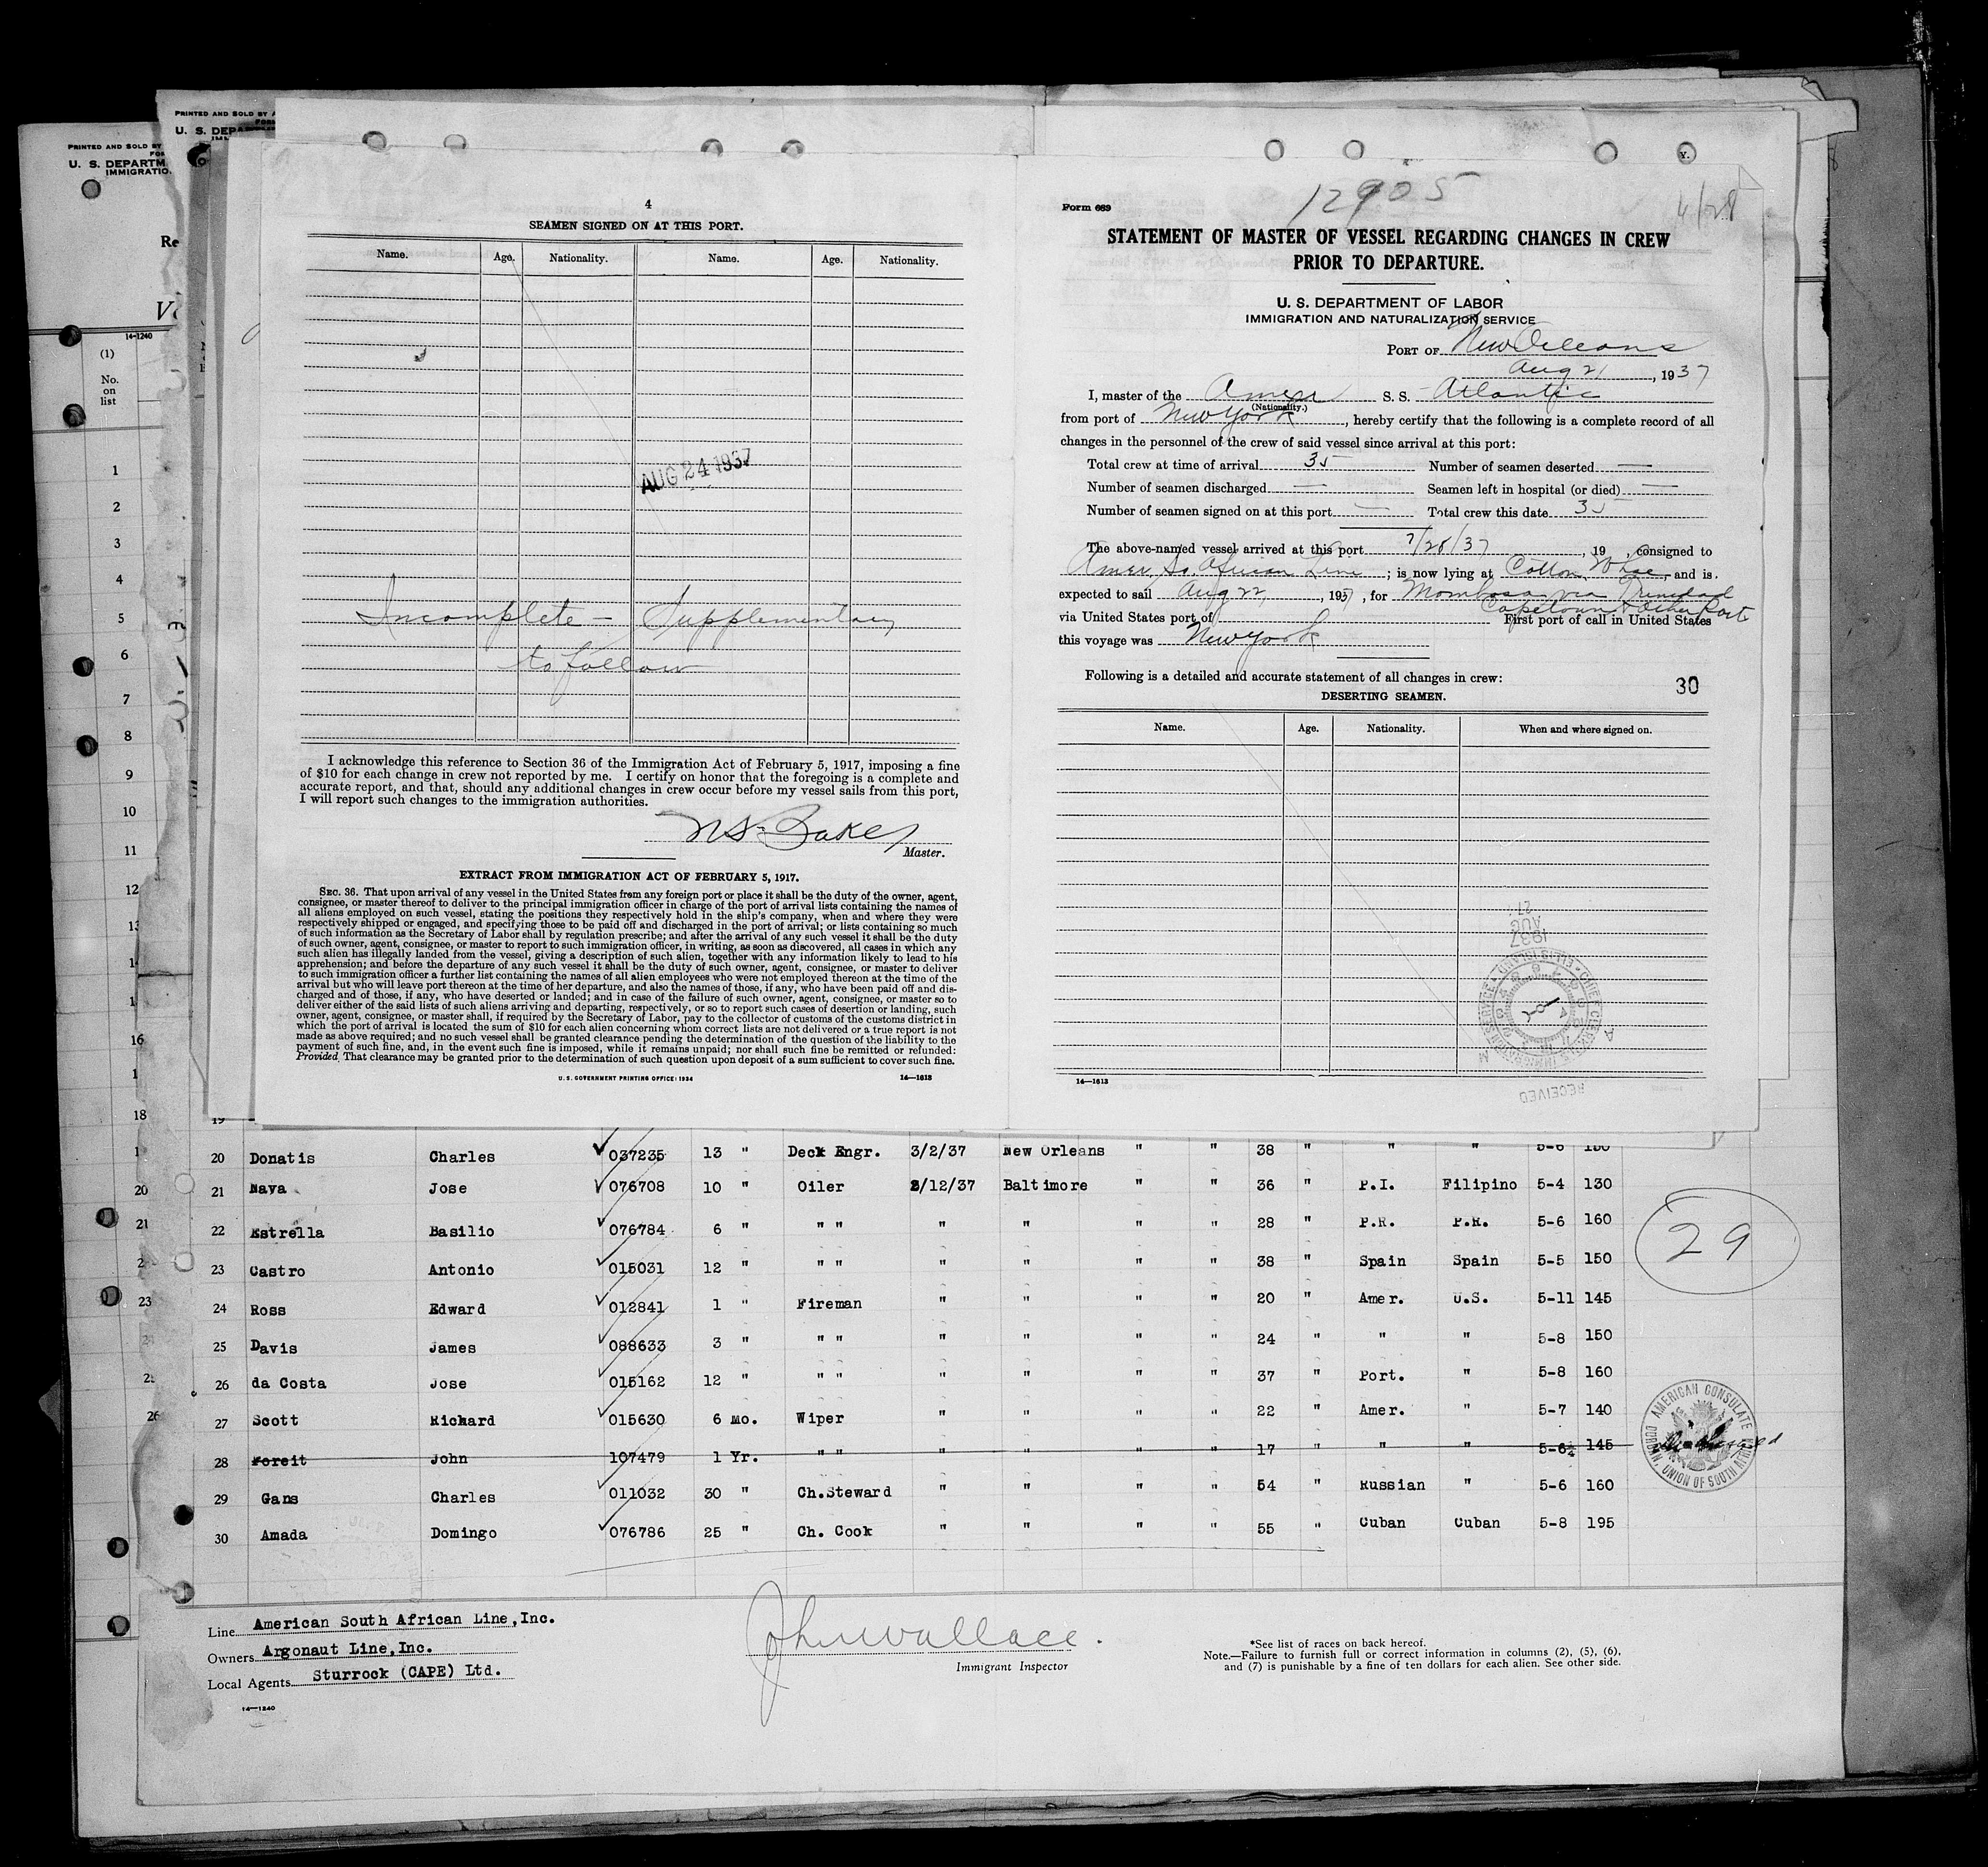 PRINTED AND SOLD BY
U. S. DEPARTM
IMMIGRATIO
Re
14-1240
(1)
No.
on
list
1
2
3
4
5
6
7
8
9
10
11
12
16
18
20
21
23
26
PRINTED AND SOLD BY
U. S. DEPA
4
SEAMEN SIGNED ON AT THIS PORT.
Name. Age. Nationality. Name. Age. Nationality.
AUG 24 1937
Incomplete - Supplementary
to follow
I acknowledge this reference to Section 36 of the Immigration Act of February 5, 1917, imposing a fine
of $10 for each change in crew not reported by me. I certify on honor that the foregoing is a complete and
accurate report, and that, should any additional changes in crew occur before my vessel sails from this port,
I will report such changes to the immigration authorities.
Master.
EXTRACT FROM IMMIGRATION ACT OF FEBRUARY 5, 1917.
SEC. 36. That upon arrival of any vessel in the United States from any foreign port or place it shall be the duty of the owner, agent,
consignee, or master thereof to deliver to the principal immigration officer in charge of the port of arrival lists containing the names of
all aliens employed on such vessel, stating the positions they respectively hold in the ship's company, when and where they were
respectively shipped or engaged, and specifying those to be paid off and discharged in the port of arrival; or lists containing so much
of such information as the Secretary of Labor shall by regulation prescribe; and after the arrival of any such vessel it shall be the duty
of such owner, agent, consignee, or master to report to such immigration officer, in writing, as soon as discovered, all cases in which any
such alien has illegally landed from the vessel, giving a description of such alien, together with any information likely to lead to his
apprehension; and before the departure of any such vessel it shall be the duty of such owner, agent, consignee, or master to deliver
to such immigration officer a further list containing the names of all alien employees who were not employed thereon at the time of the
arrival but who will leave port thereon at the time of her departure, and also the names of those, if any, who have been paid off and dis-
charged and of those, if any, who have deserted or landed; and in case of the failure of such owner, agent, consignee, or master so to
deliver either of the said lists of such aliens arriving and departing, respectively, or so to report such cases of desertion or landing, such
owner, agent, consignee, or master shall, if required by the Secretary of Labor, pay to the collector of customs of the customs district in
which the port of arrival is located the sum of $10 for each alien concerning whom correct lists are not delivered or a true report is not
made as above required; and no such vessel shall be granted clearance pending the determination of the question of the liability to the
payment of such fine, and, in the event such fine is imposed, while it remains unpaid; nor shall such fine be remitted or refunded:
Provided, That clearance may be granted prior to the determination of such question upon deposit of a sum sufficient to cover such fine.
U. S. GOVERNMENT PRINTING OFFICE: 1934 14—1613
12905
Form 689
STATEMENT OF MASTER OF VESSEL REGARDING CHANGES IN CREW
PRIOR TO DEPARTURE.
U. S. DEPARTMENT OF LABOR
IMMIGRATION AND NATURALIZATION SERVICE
PORT OF New Orleans
Aug 21, 1937
I, master of the Amer S. S. Atlantic
(Nationality.)
from port of New York, hereby certify that the following is a complete record of all
changes in the personnel of the crew of said vessel since arrival at this port:
Total crew at time of arrival 35 Number of seamen deserted —
Number of seamen discharged — Seamen left in hospital (or died) —
Number of seamen signed on at this port — Total crew this date 35
The above-named vessel arrived at this port 7/28/37, 19 , consigned to
Amer. So. African Line; is now lying at Cotton Whse, and is
expected to sail Aug 22, 1937, for Mombosa via Trinidad
Capetown & Other Ports
via United States port of First port of call in United States
this voyage was New York
Following is a detailed and accurate statement of all changes in crew:
30
DESERTING SEAMEN.
Name. Age. Nationality. When and where signed on.
1937
AUG
27
RECEIVED
14—1613
19
20 Donatis Charles 037235 13 " Deck Engr. 3/2/37 New Orleans " " 38 " " " 5-6 150
21 Nava Jose 076708 10 " Oiler 2/12/37 Baltimore " " 36 " P.I. Filipino 5-4 130
22 Estrella Basilio 076784 6 " " " " " " " 28 " P.R. P.R. 5-6 160
23 Castro Antonio 015031 12 " " " " " " " 38 " Spain Spain 5-5 150
24 Ross Edward 012841 1 " Fireman " " " " 20 " Amer. U.S. 5-11 145
25 Davis James 088633 3 " " " " " " " 24 " " " 5-8 150
26 da Costa Jose 015162 12 " " " " " " " 37 " Port. " 5-8 160
27 Scott Richard 015630 6 mo. Wiper " " " " 22 " Amer. " 5-7 140
28 Foreit John 107479 1 Yr. " " " " " " 17 " " " 5-6½ 145
29 Gans Charles 011032 30 " Ch.Steward " " " " 54 " Russian " 5-6 160
30 Amada Domingo 076786 25 " Ch. Cook " " " " 55 " Cuban Cuban 5-8 195
29
AMERICAN CONSULATE
DURBAN, UNION OF SOUTH AFRICA
Line American South African Line,Inc.
Owners Argonaut Line,Inc.
Local Agents Sturrock (CAPE) Ltd.
14—1240
John Wallace.
Immigrant Inspector
*See list of races on back hereof.
Note.—Failure to furnish full or correct information in columns (2), (5), (6),
and (7) is punishable by a fine of ten dollars for each alien. See other side.